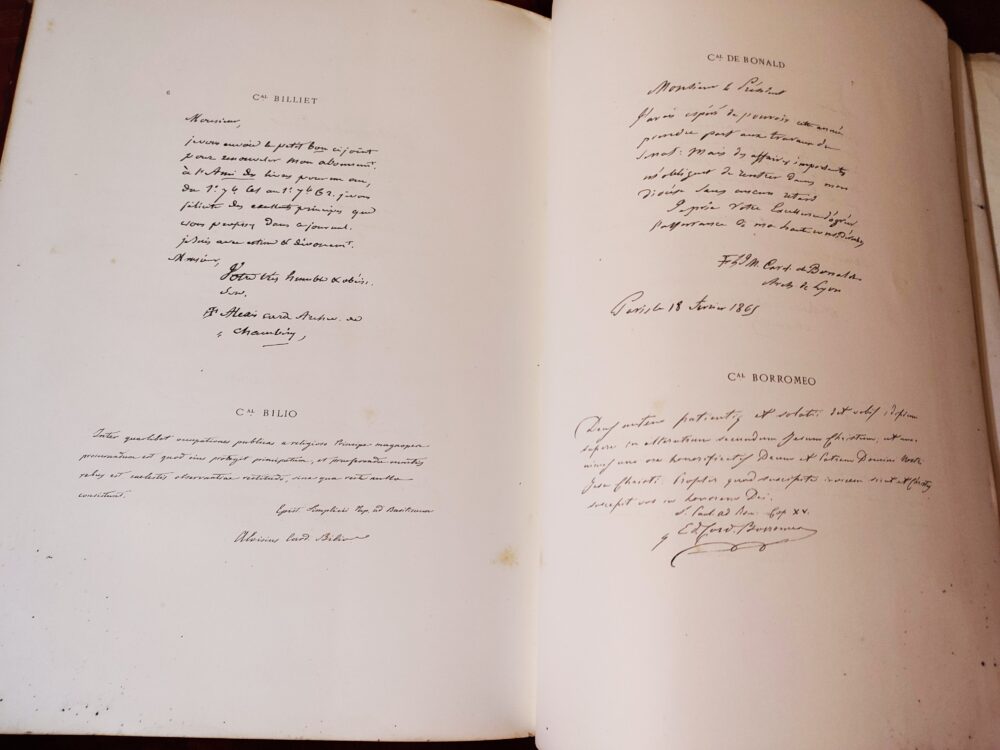 6
Cᴬᴸ BILLIET
Monsieur,
je vous envoie le petit bon ci joint
pour renouveler mon abonnemt
à l'Ami des livres pour un an,
du 1er 7bre 61 au 1er 7bre 62. je vous
félicite des excellents principes que
vous professez dans ce journal.
je suis avec estime & dévouement.
Monsieur,
Votre très humble & obéis.
Serv.
† Alexis card. Archev. de
Chambéry,
Cᴬᴸ BILIO
Inter quaslibet occupationes publicas a religioso Principe magnopere
procurandum est quod eius protegat principatum, et praeferenda cunctis
rebus est caelestis observantiae rectitudo, sine qua recte nulla
consistunt.
Epist. Simplicii Pap. ad Basiliscum
Aloisius Card. Bilio
Cᴬᴸ DE BONALD
Monsieur le Président
J'avais espéré de pouvoir cette année
prendre part aux travaux du
Senat: Mais des affaires importantes
m'obligent de rentrer dans mon
Diocèse sans aucun retard
Je prie Votre Excellence d'agréer
l'assurance de ma haute considération
† L. J. M. Card. de Bonald
Arch. de Lyon
Paris le 18 février 1865
Cᴬᴸ BORROMEO
Deus autem patientiae et solatii det vobis idipsum
sapere in alterutrum secundum Jesum Christum, ut una-
nimes uno ore honorificetis Deum et Patrem Domini Nostri
Jesu Christi. Propter quod suscipite invicem sicut et Christus
suscepit vos in honorem Dei.
S. Paul. ad Rom. Cap XV.
Card. Borromeo